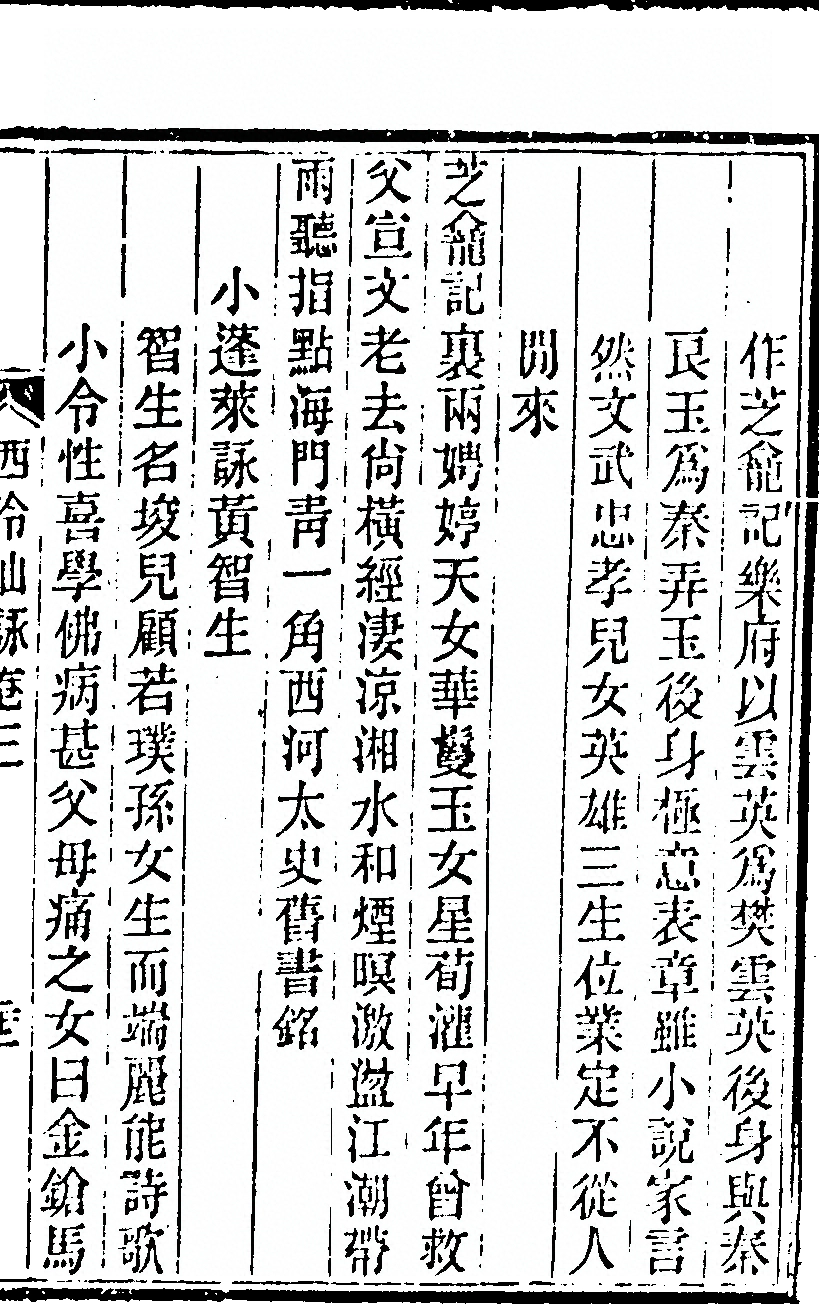 作芝龕記樂府以雲英爲樊雲英後身與秦
良玉爲秦弄玉後身極意表章雖小說家言
然文武忠孝兒女英雄三生位業定不從人
間來
芝龕記裏兩娉婷天女華鬘玉女星荀灌早年曾救
父宣文老去尙橫經淒涼湘水和煙暝激灩江潮帶
雨聽指點海門靑一角西河太史舊書銘
小蓬萊詠黃智生
智生名埈兒顧若璞孫女生而端麗能詩歌
小令性喜學佛病甚父母痛之女曰金鎗馬
西泠仙詠卷三